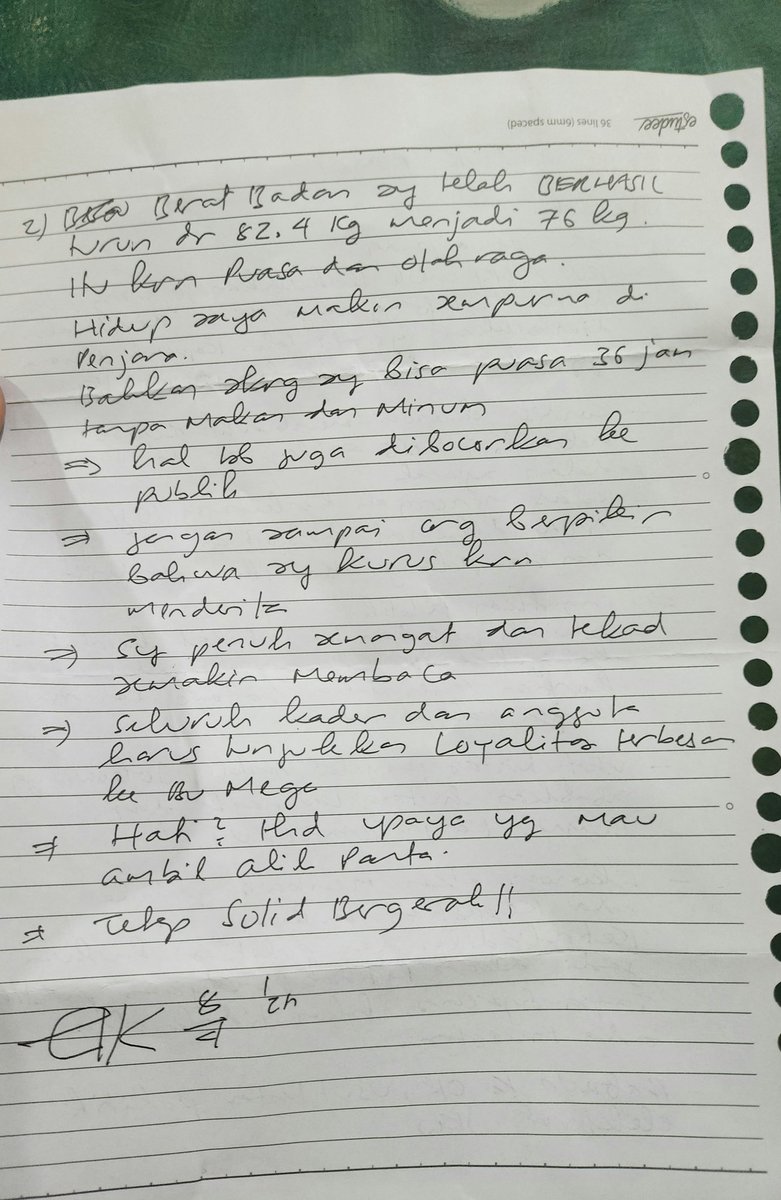 estudee 36 lines (6mm spaced)
2) Berat Badan sy telah BERHASIL
turun dr 82.4 kg menjadi 76 kg.
Itu krn Puasa dan olah raga.
Hidup saya makin sempurna di
Penjara.
Bahkan skrg sy bisa puasa 36 jam
tanpa Makan dan Minum
⇒ hal tsb juga dibocorkan ke
publik
⇒ jangan sampai org berpikir
bahwa sy kurus krn
menderita
⇒ Sy penuh semangat dan tekad
semakin Membaca
⇒ Seluruh kader dan anggota
harus tunjukkan Loyalitas terbesar
ke Bu Mega
⇒ Hati2 thd upaya yg mau
ambil alih Partai.
⇒ Tetap Solid Bergerak!!